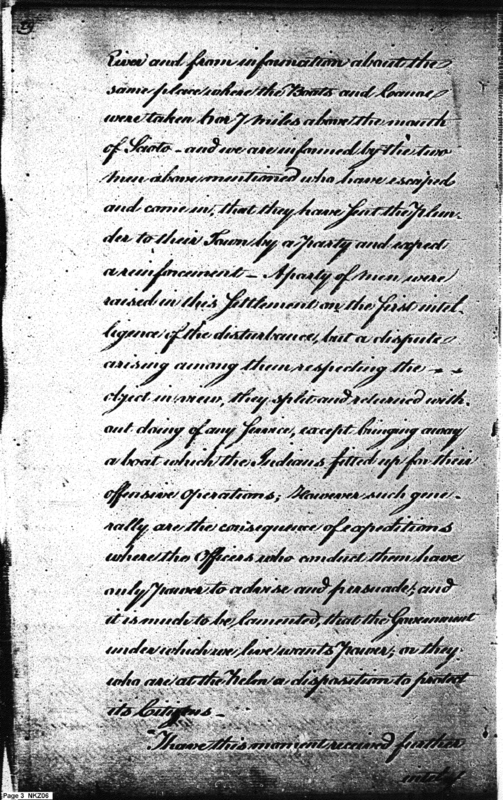 River and from information about the
same place where the Boats and Canoe
were taken 6 or 7 miles above the mouth
of Scioto - and we are informed by the two
men above mentioned who have escaped
and come in, that they have sent the Plun-
der to their Town by a Party and
a reinforcement - A party of men were
raised in this Settlement on the first intel-
ligence of the disturbance, but a dispute
arising among them respecting the - -
object in view, they split and returned with-
out doing of any Service, except bringing away
a boat which the Indians fitted up for their
offensive operations; However such gene-
rally are the consequence of expeditions
where the Officers who conduct them have
only Power to advise and persuade; and
it is much to be lamented, that the Government
under which we live wants Power; or they
who are at the helm a disposition to protect
its Citizens -
"I have this moment received further
Page 3 NKZ06